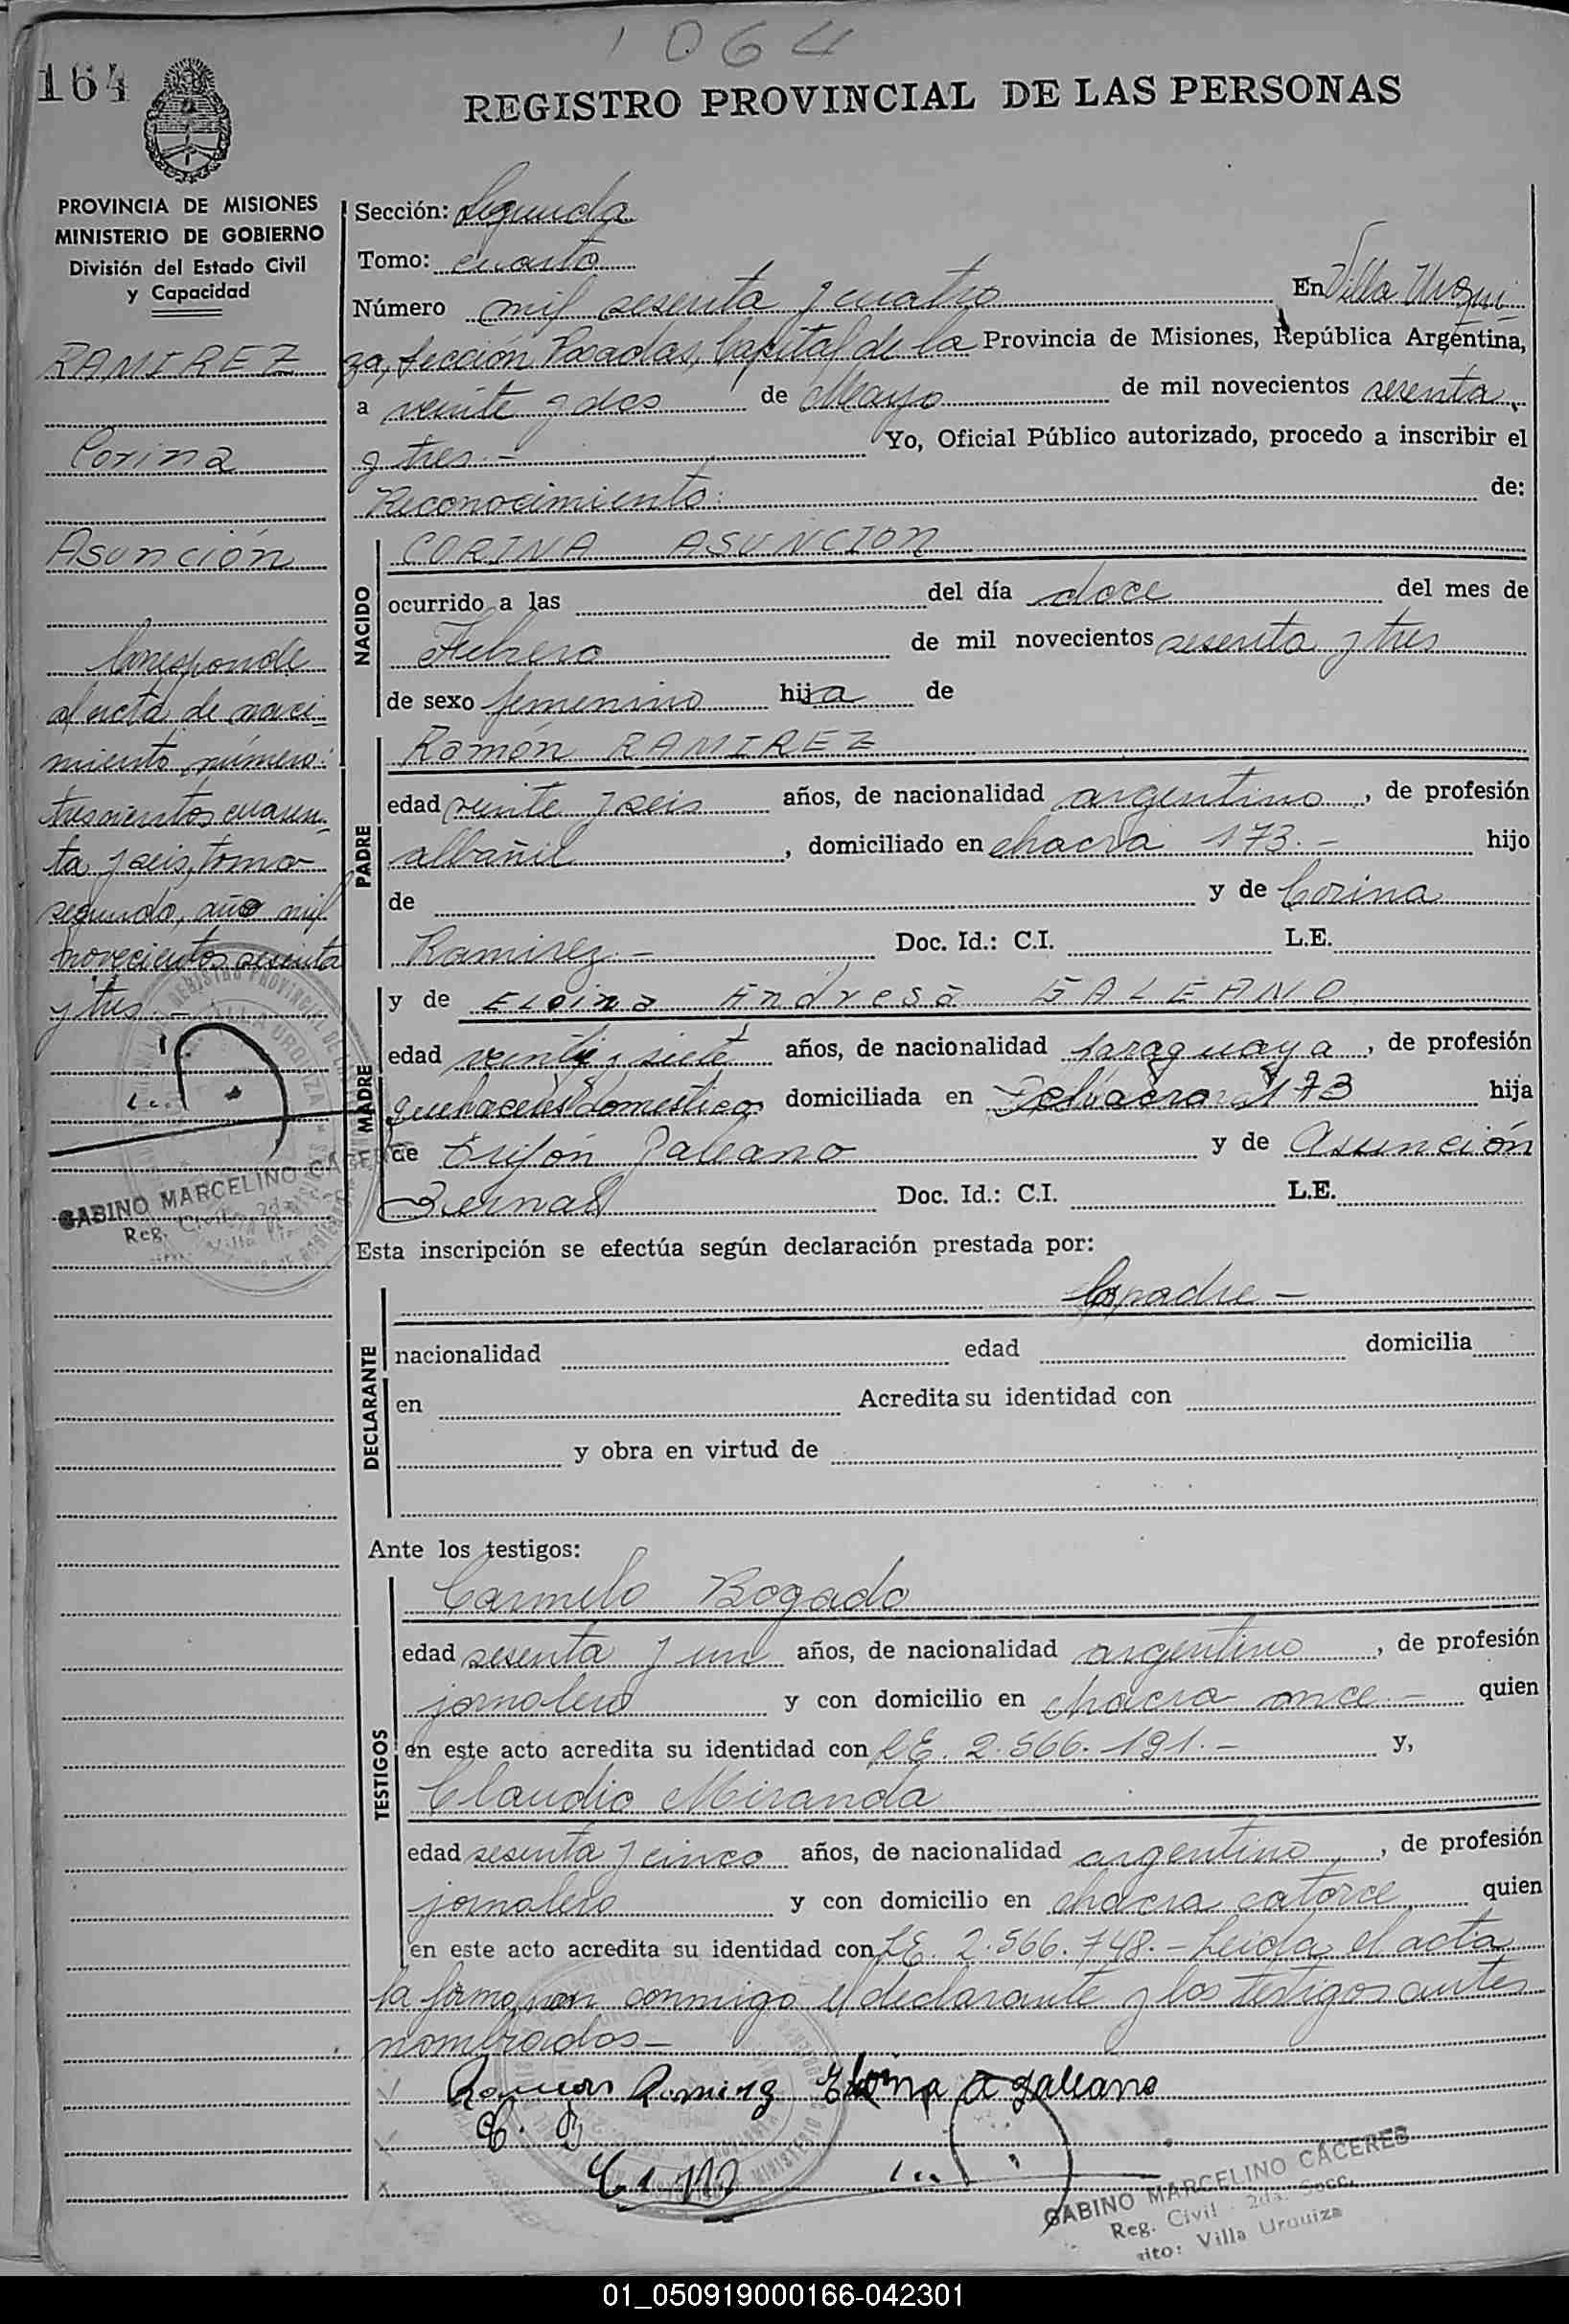 1064
164
REGISTRO PROVINCIAL DE LAS PERSONAS
PROVINCIA DE MISIONES
MINISTERIO DE GOBIERNO
División del Estado Civil
y Capacidad
RAMIREZ
Corina
Asunción
Corresponde
al acta de naci-
miento número:
trescientos cuaren-
ta y seis, tomo
segundo, año mil
novecientos sesenta
y tres.-
GABINO MARCELINO CACERES
Reg. Civil 2da.
Villa
Sección: Segunda
Tomo: cuarto
Número mil sesenta y cuatro En Villa Urqui-
za, Sección Posadas, Capital de la Provincia de Misiones, República Argentina,
a veinte y dos de Mayo de mil novecientos sesenta
y tres.- Yo, Oficial Público autorizado, procedo a inscribir el
Reconocimiento: de:
NACIDO
CORINA ASUNCION
ocurrido a las del día doce del mes de
Febrero de mil novecientos sesenta y tres
de sexo femenino hija de
PADRE
Ramón RAMIREZ
edad veinte y seis años, de nacionalidad argentino, de profesión
albañil, domiciliado en chacra 173.- hijo
de y de Corina
Ramirez.- Doc. Id.: C.I. L.E.
MADRE
y de Eloina Andresa GALEANO
edad veinte y siete años, de nacionalidad paraguaya, de profesión
quehaceres domesticos domiciliada en chacra 173 hija
de Galeano y de Asunción
Bernal Doc. Id.: C.I. L.E.
Esta inscripción se efectúa según declaración prestada por:
DECLARANTE
padre-
nacionalidad edad domicilia
en Acredita su identidad con
y obra en virtud de
Ante los testigos:
TESTIGOS
Carmelo Bogado
edad sesenta y un años, de nacionalidad argentino, de profesión
jornalero y con domicilio en chacra once.- quien
en este acto acredita su identidad con L.E. 2.566.191.- y,
Claudio Miranda
edad sesenta y cinco años, de nacionalidad argentino, de profesión
jornalero y con domicilio en chacra catorce quien
en este acto acredita su identidad con L.E. 2.566.748.- Leida el acta
la firman conmigo el declarante y los testigos antes
nombrados-
Ramon Ramirez Eloina A Galeano
C. B
C. M
GABINO MARCELINO CACERES
Reg. Civil 2da. Secc.
Villa Urquiza
01_050919000166-042301